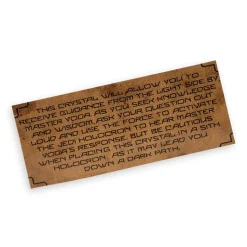 THIS CRYSTAL WILL ALLOW YOU TO
RECEIVE GUIDANCE FROM THE LIGHT SIDE BY
MASTER YODA. AS YOU SEEK KNOWLEDGE
AND WISDOM. ASK YOUR QUESTION OUT
LOUD AND USE THE FORCE TO ACTIVATE
THE JEDI HOLOCRON TO HEAR MASTER
YODA'S RESPONSE. BUT BE CAUTIOUS
WHEN PLACING THIS CRYSTAL IN A SITH
HOLOCRON, AS IT MAY LEAD YOU
DOWN A DARK PATH.